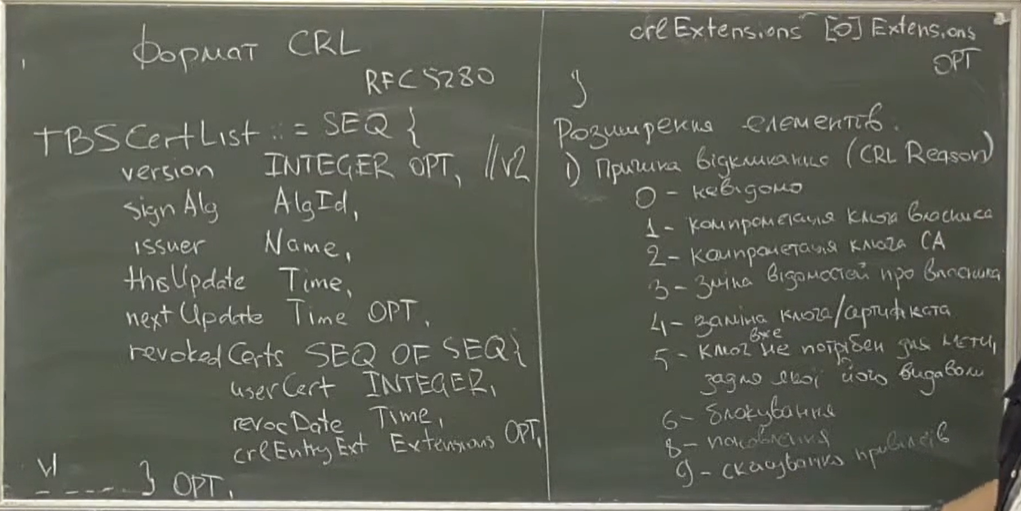 Формат CRL
RFC 5280
TBSCertList ::= SEQ {
version INTEGER OPT, //v2
signAlg AlgId,
issuer Name,
thisUpdate Time,
nextUpdate Time OPT,
revokedCerts SEQ OF SEQ{
userCert INTEGER,
revocDate Time,
crlEntryExt Extensions OPT,
} OPT,
crlExtensions [0] Extensions
OPT
}
Розширення елементів.
1) Причина відкликання (CRL Reason)
0 - невідомо
1 - компрометація ключа власника
2 - компрометація ключа CA
3 - зміна відомостей про власника
4 - заміна ключа/сертифіката
вже
5 - ключ не потрібен для мети,
задля якої його видавали
6 - блокування
8 - поновлення
9 - скасування привілеїв